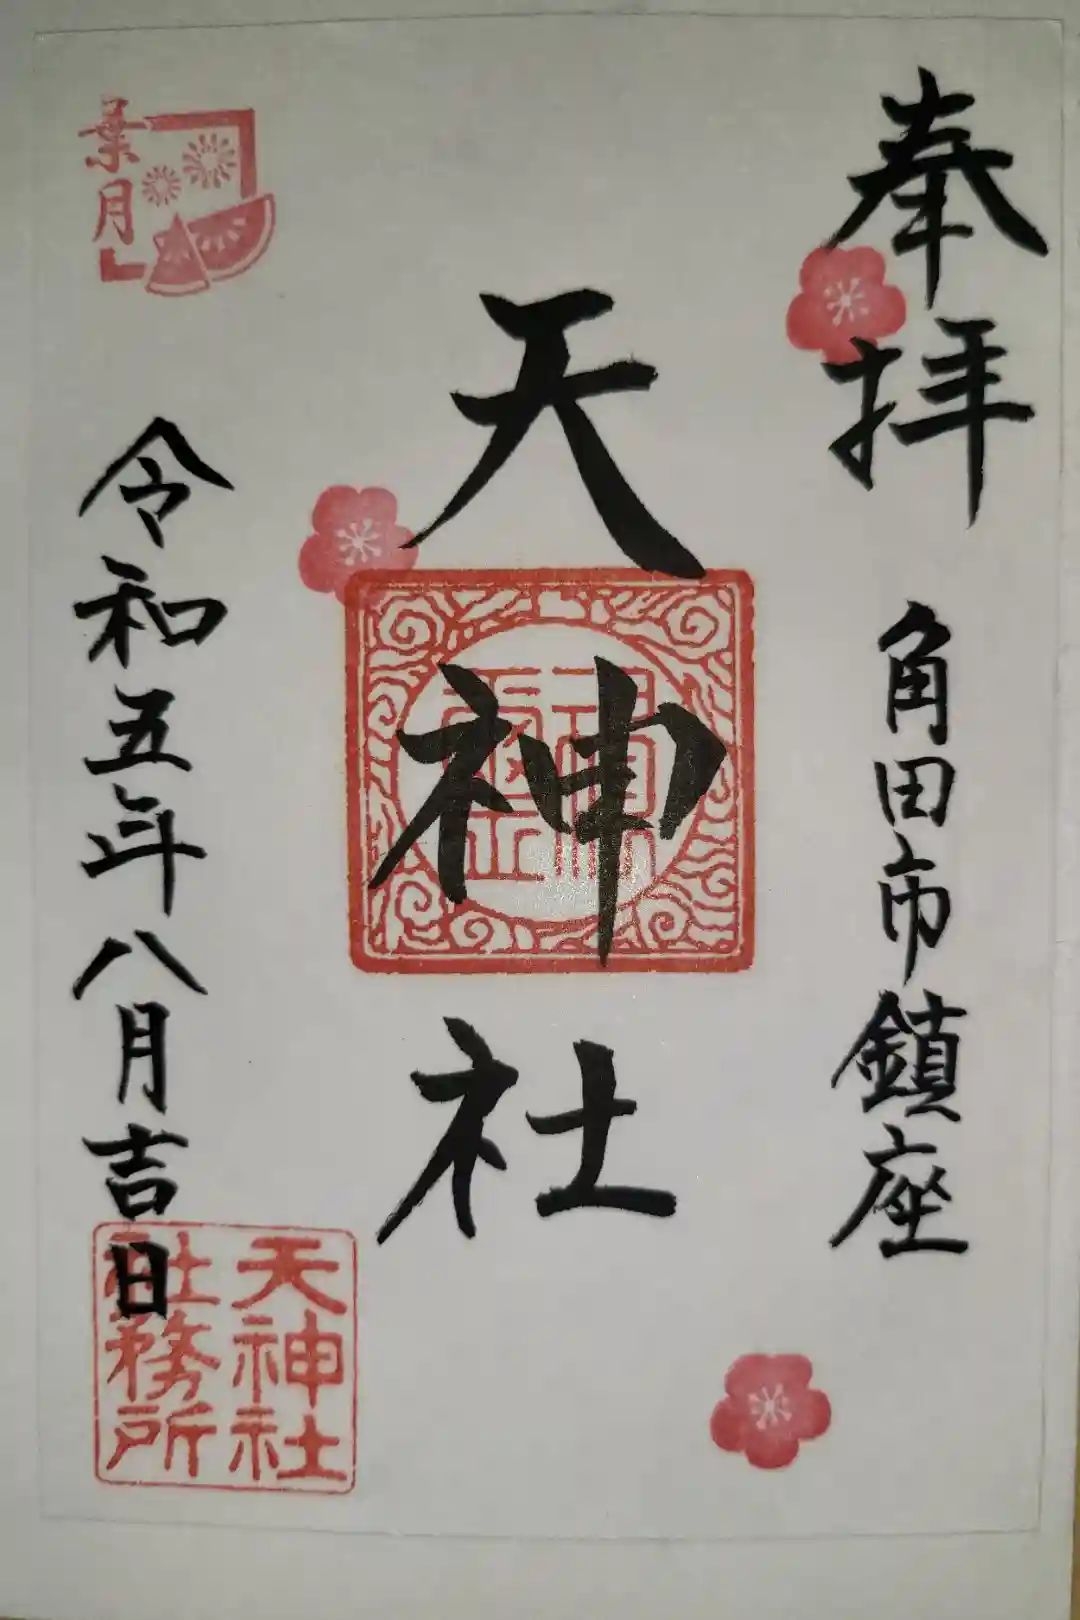 奉拝
角田市鎮座
天神社
葉月
令和五年八月吉日
天神社
社務所